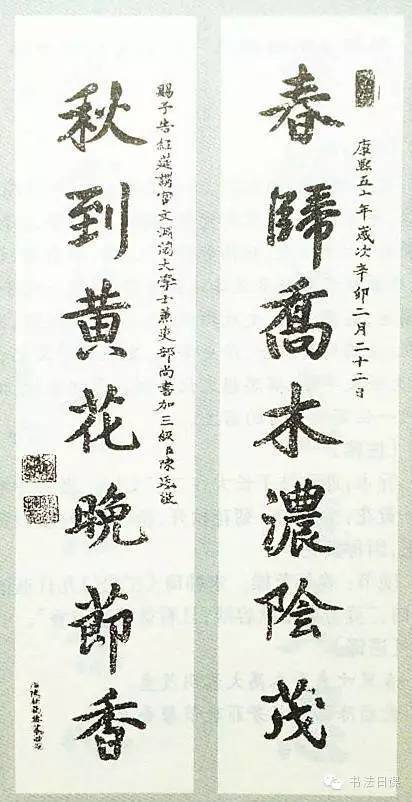 康熙五十年歲次辛卯二月二十二日
春歸喬木濃陰茂
賜予告經筵講官文淵閣大學士兼吏部尚書加三級臣陳廷敬
秋到黄花晚節香
书法日课